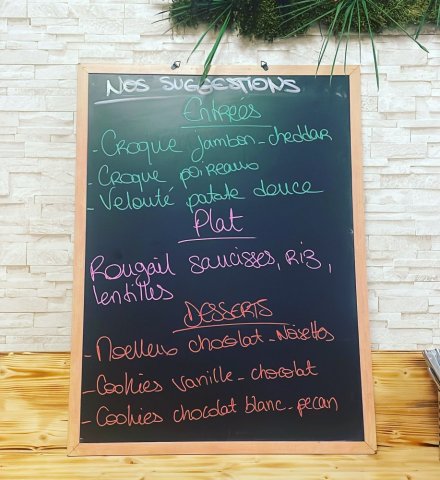 NOS SUGGESTIONS
Entrées
- Croque jambon - cheddar
- Croque poireaux
- Velouté patate douce
Plat
Rougail saucisses, Riz,
lentilles
DESSERTS
- Moelleux chocolat - Noisettes
- Cookies vanille - chocolat
- Cookies chocolat blanc - pecan